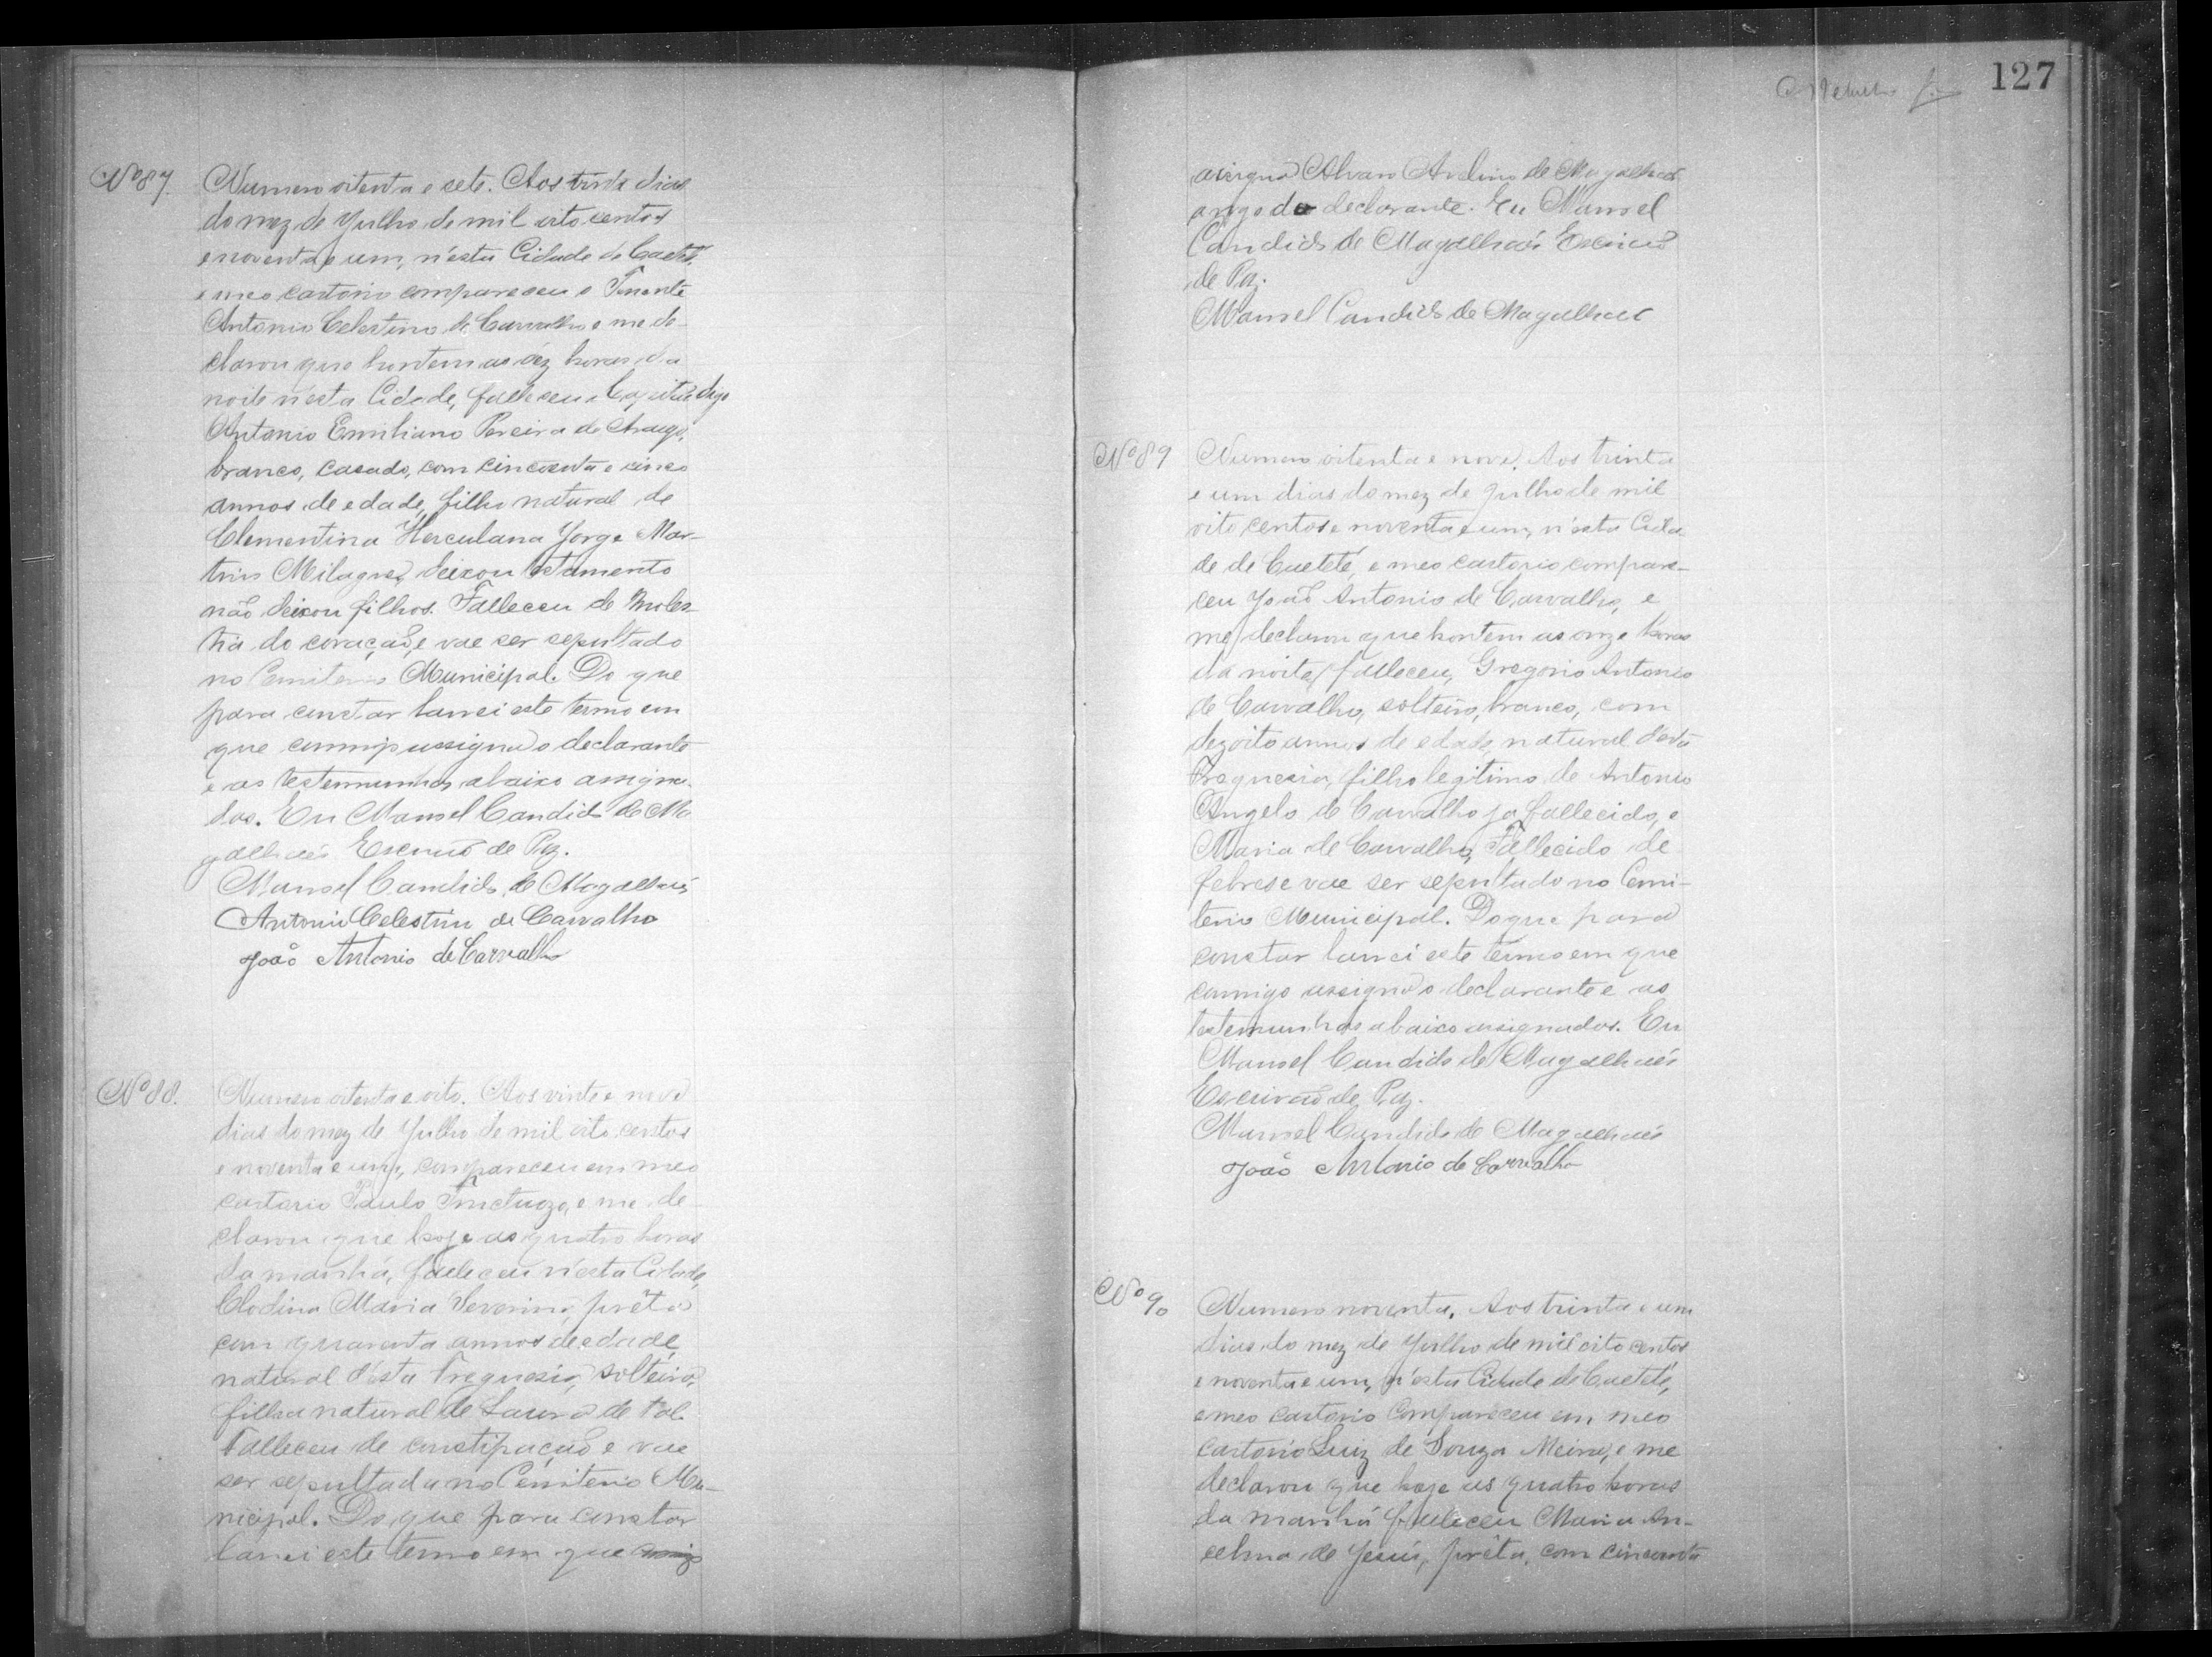 127
Nº 87.
Numero oitenta e sete. Aos trinta dias
do mez de Julho de mil oito centos
e noventa e um, n'esta Cidade de Caeteté,
e meo cartorio compareceu o Tenente
Antonio Celestino de Carvalho e me de-
clarou que hontem as déz horas da
noite n'esta Cidade, falleceu o Capitão
Antonio Emiliano Pereira de Araujo,
branco, casado, com cincoenta e cinco
annos de edade, filho natural de
Clementina Herculana Jorge Mar-
tins Milagres, deixou testamento
não deixou filhos. Falleceu de moles-
tia do coração, e vae ser sepultado
no Cemiterio Municipal. Do que
para constar lancei este termo em
que commigo assigna o declarante
e as testemunhas abaixo assigna-
das. Eu Manoel Candido de Ma
galhaés Escrivaõ de Paz.
Manoel Candido de Magalhaés
Antonio Celestino de Carvalho
João Antonio de Carvalho
Nº 88.
Numero oitenta e oito. Aos vinte e nove
dias do mez de Julho de mil oito centos
e noventa e um, compareceu em meo
cartorio Paulo Fructuozo, e me de-
clarou que hoje as quatro horas
da manhã, falleceu n'esta Cidade,
Clodina Maria Severina, prêta
com quarenta annos de edade,
natural d'esta Freguesia, solteira,
filha natural de Laura de tal.
Falleceu de constipação e vae
ser sepultada no Cemiterio Mu-
nicipal. Do que para constar
lancei este termo em que
assigna Alvaro Avelino de Magalhaés
arogo do declarante. Eu Manoel
Candido de Magalhaés Escrivaõ
de Paz.
Manoel Candido de Magalhaes
Nº 89
Numero oitenta e nove. Aos trinta
e um dias do mez de Julho de mil
oito centos e noventa e um, n'esta Cida-
de de Caeteté, e meo cartorio compare-
ceu João Antonio de Carvalho, e
me declarou que hontem as onze horas
da noite, falleceu, Gregorio Antonio
de Carvalho, solteiro, branco, com
dezoito annos de edade, natural d'esta
Freguesia, filho legitimo de Antonio
Angelo de Carvalho ja fallecido, e
Maria de Carvalho, Fallecido de
febres e vae ser sepultado no Cemi-
terio Municipal. Do que para
constar lancei este termo em que
commigo assigna o declarante e as
testemunhas abaixo assignadas. Eu
Manoel Candido de Magalhaés
Escrivaõ de Paz.
Manoel Candido de Magalhaés
João Antonio de Carvalho
Nº 90
Numero noventa. Aos trinta e um
dias do mez de Julho de mil oito centos
e noventa e um, n'esta Cidade de Caeteté,
e meo cartorio compareceu em meo
cartorio Luiz de Souza Meira, e me
declarou que hoje as quatro horas
da manhã falleceu Maria An-
celma de Jesus, prêta, com cincoenta